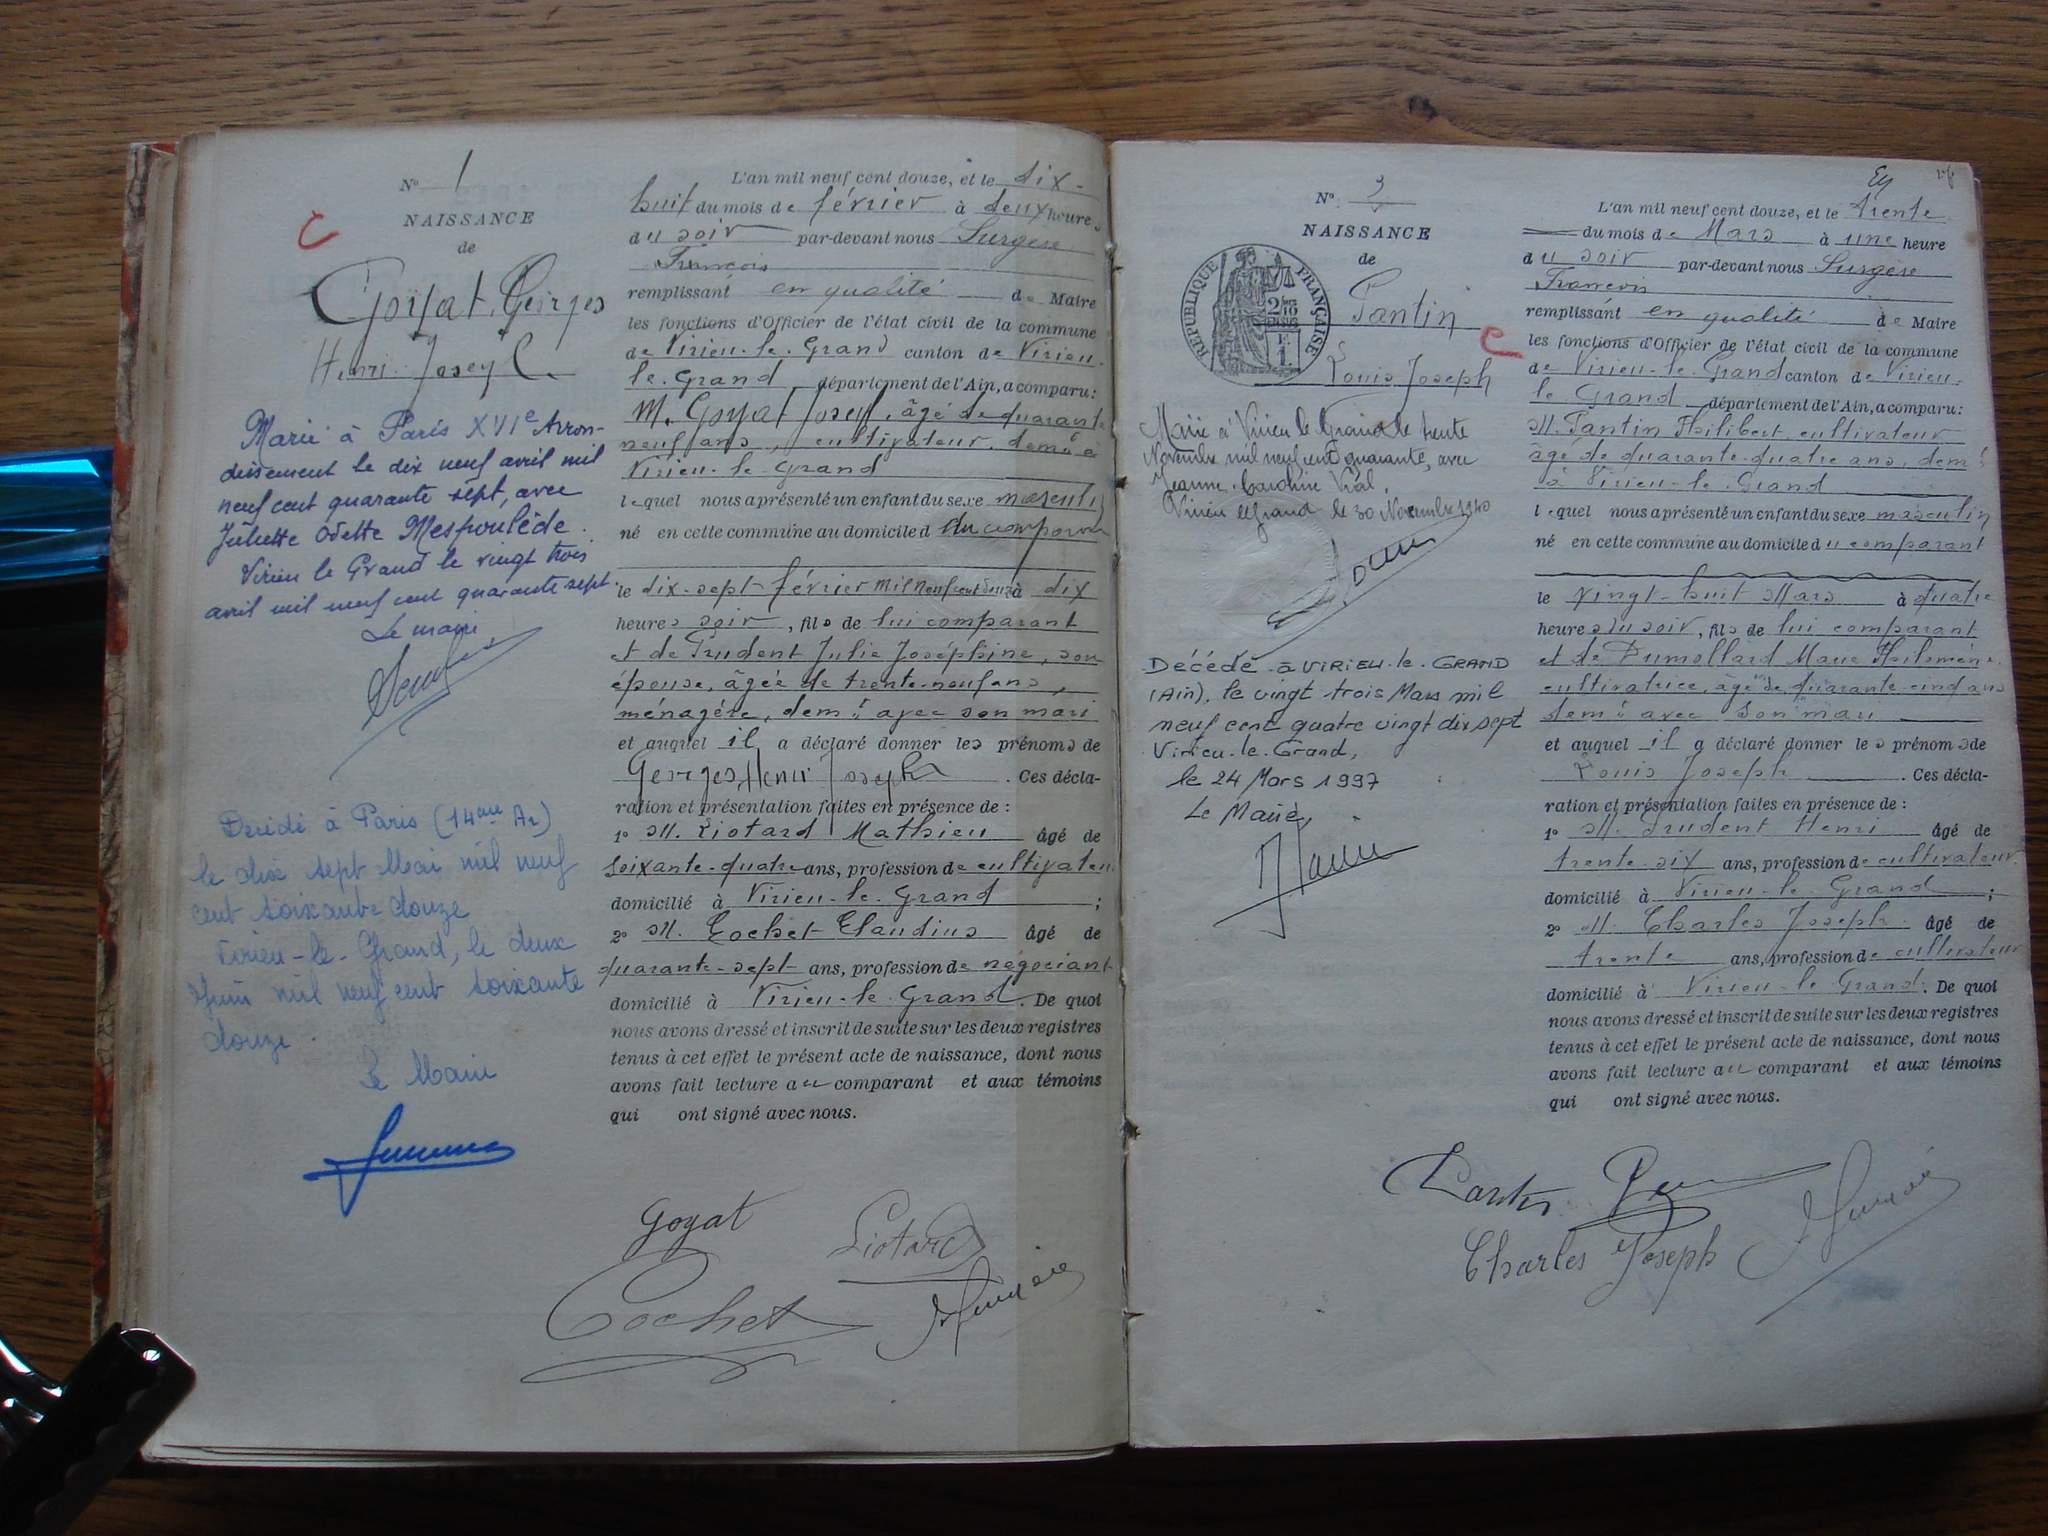 N° 1
NAISSANCE
de
Goyat Georges
Henri Joseph
Marié à Paris XVIe Arron-
dissement le dix neuf avril mil
neuf cent quarante sept, avec
Juliette Odette Mespoulède.
Virieu le Grand le vingt trois
avril mil neuf cent quarante sept
Le maire,
Décédé à Paris (14ème Ar)
le dix sept Mai mil neuf
cent soixante douze
Virieu-le-Grand, le deux
Juin mil neuf cent soixante
douze.
Le Maire
L'an mil neuf cent douze, et le dix-
huit du mois de février à deux heures
du soir par-devant nous Surgère
François
remplissant en qualité de Maire
les fonctions d'Officier de l'état civil de la commune
de Virieu-le-Grand canton de Virieu-
le-Grand, département de l'Ain, a comparu:
M. Goyat Joseph, âgé de quarante
neuf ans, cultivateur, demt à
Virieu-le-Grand
lequel nous a présenté un enfant du sexe masculin
né en cette commune au domicile d du comparant
le dix-sept février mil neuf cent douze à dix
heures soir, fils de lui comparant
et de Prudent Julie Joséphine, son
épouse, âgée de trente-neuf ans,
ménagère, demt avec son mari
et auquel il a déclaré donner les prénoms de
Georges, Henri Joseph. Ces décla-
ration et présentation faites en présence de :
1° M. Liotard Mathieu âgé de
soixante-quatre ans, profession de cultivateur
domicilié à Virieu-le-Grand ;
2° M. Cochet Claudius âgé de
quarante-sept ans, profession de négociant
domicilié à Virieu-le-Grand. De quoi
nous avons dressé et inscrit de suite sur les deux registres
tenus à cet effet le présent acte de naissance, dont nous
avons fait lecture au comparant et aux témoins
qui ont signé avec nous.
Goyat Liotard
Cochet
N° 3
NAISSANCE
de
RÉPUBLIQUE FRANÇAISE
Pantin
Louis Joseph
Marié à Virieu le Grand le trente
Novembre mil neuf cent quarante, avec
Jeanne Caroline Vial.
Virieu le Grand le 30 Novembre 1940
Décédé à VIRIEU-le-GRAND
(Ain), le vingt trois Mars mil
neuf cent quatre vingt dix sept
Virieu-le-Grand,
le 24 Mars 1997
Le Maire,
L'an mil neuf cent douze, et le trente
du mois de Mars à une heure
du soir par-devant nous Surgère
François
remplissant en qualité de Maire
les fonctions d'Officier de l'état civil de la commune
de Virieu-le-Grand canton de Virieu-
le Grand, département de l'Ain, a comparu:
M. Pantin Philibert cultivateur
âgé de quarante-quatre ans, demt
à Virieu-le-Grand
lequel nous a présenté un enfant du sexe masculin
né en cette commune au domicile du comparant
le vingt-huit Mars à quatre
heures du soir, fils de lui comparant
et de Dumollard Marie Philomène
cultivatrice, âgée de quarante-cinq ans
demt avec son mari
et auquel il a déclaré donner les prénoms de
Louis Joseph. Ces décla-
ration et présentation faites en présence de :
1° M. Prudent Henri âgé de
trente-six ans, profession de cultivateur
domicilié à Virieu-le-Grand ;
2° M. Charles Joseph âgé de
trente ans, profession de cultivateur
domicilié à Virieu-le-Grand. De quoi
nous avons dressé et inscrit de suite sur les deux registres
tenus à cet effet le présent acte de naissance, dont nous
avons fait lecture au comparant et aux témoins
qui ont signé avec nous.
Pantin
Charles Joseph